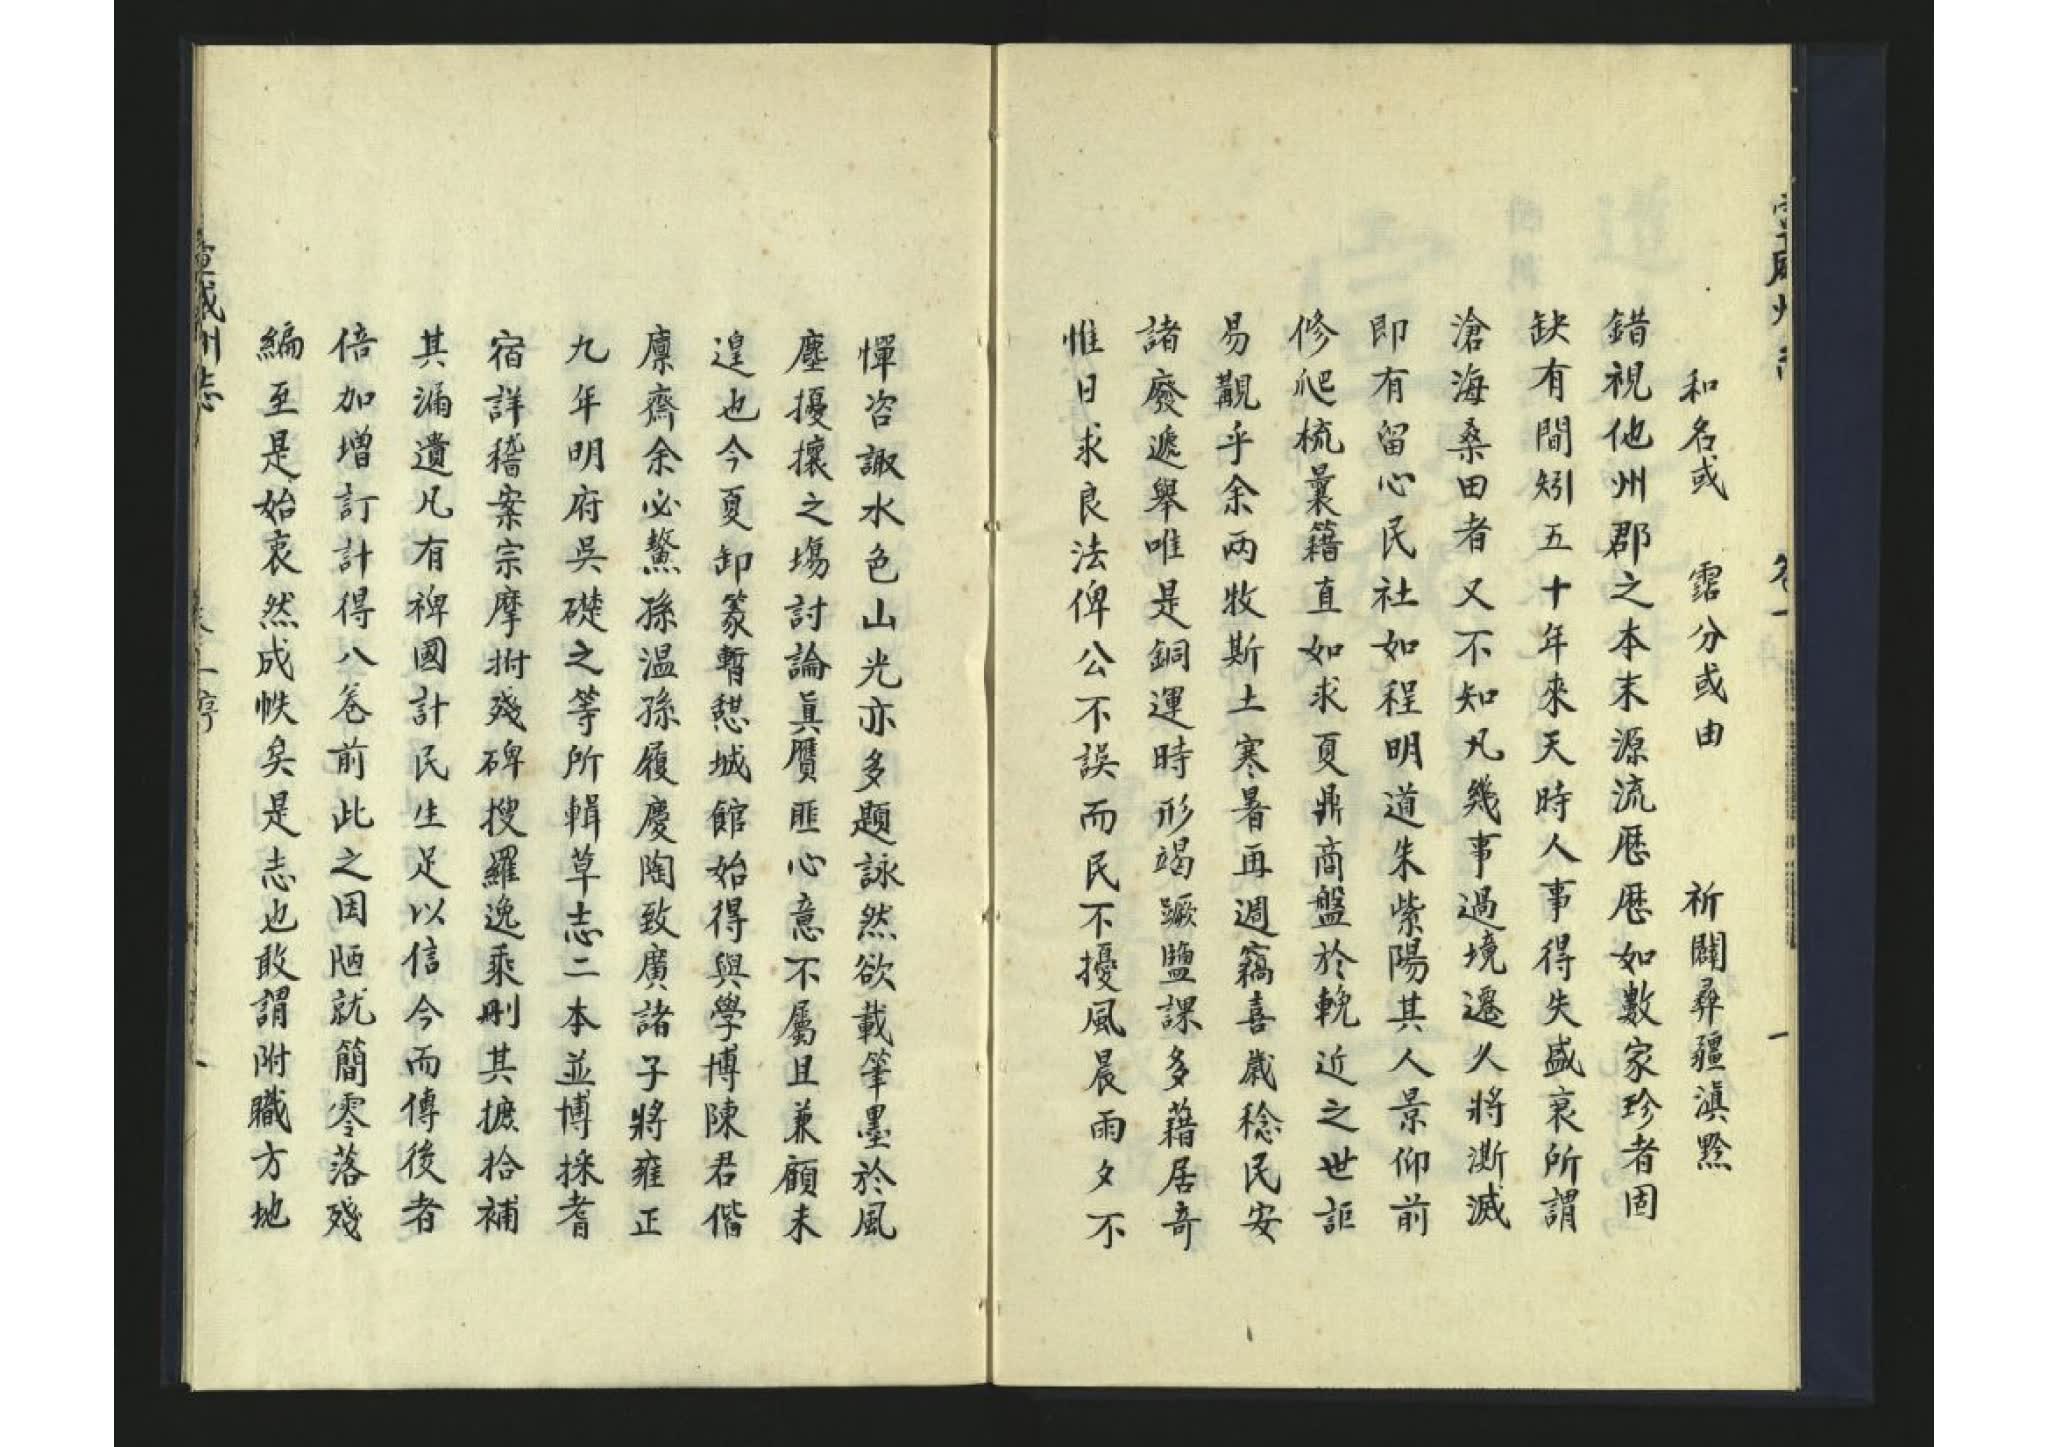 和名或　霑分或由　　祈闢彛疆滇黔
錯視他州郡之本末源流歷歷如數家珍者固
缺有間矧五十年來天時人事得失盛衰所謂
滄海桑田者又不知凡幾事過境遷久將澌滅
即有留心民社如程明道朱紫陽其人景仰前
修爬梳曩籍直如求夏鼎商盤於輓近之世詎
易觀乎余兩牧斯土寒暑再週竊喜歲稔民安
諸廢遞舉唯是銅運時形竭蹶鹽課多藉居奇
惟日求良法俾公不誤而民不擾風晨雨夕不
憚咨諏水色山光亦多題詠然欲載筆墨於風
塵擾攘之塲討論眞贋匪心意不屬且兼顧未
遑也今夏卸篆暫憇城館始得與學博陳君偕
廪齋余必鰲孫溫孫履慶陶致廣諸子將雍正
九年明府吳礎之等所輯草志二本並博採耆
宿詳稽案宗摩拊殘碑搜羅逸乘刪其摭拾補
其漏遺凡有裨國計民生足以信今而傳後者
倍加增訂計得八卷前此之因陋就簡零落殘
編至是始裒然成帙矣是志也敢謂附職方地
宣威州志
卷一序
一